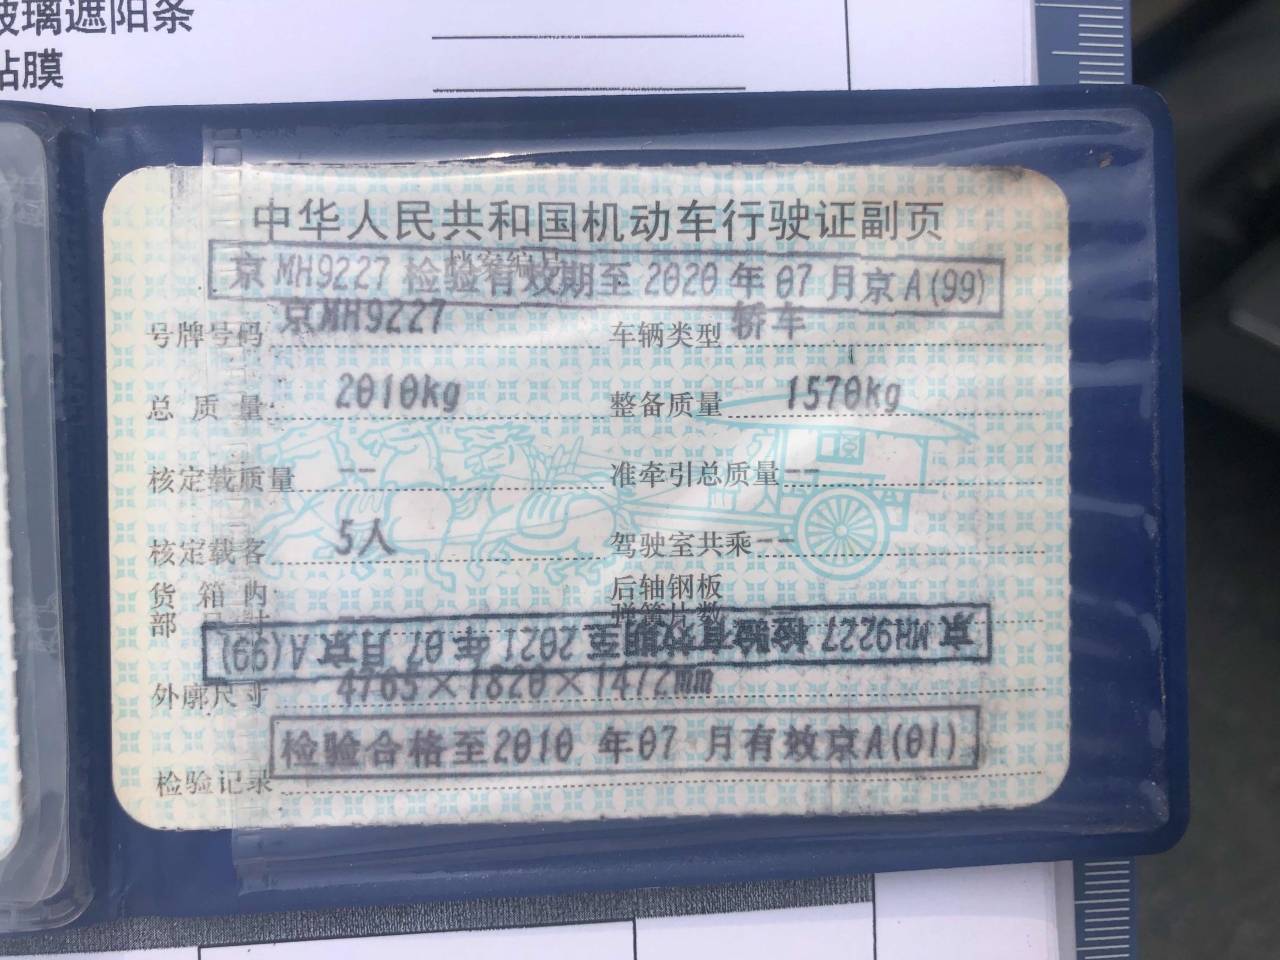 玻璃遮阳条
贴膜
中华人民共和国机动车行驶证副页
档案编号
京MH9227 检验有效期至 2020 年 07 月京A(99)
号牌号码 京MH9227 车辆类型 轿车
总质量 2010kg 整备质量 1570kg
核定载质量 -- 准牵引总质量 --
核定载客 5人 驾驶室共乘 --
货箱内 后轴钢板
部尺寸 -- 弹簧片数 --
京MH9227 检验有效期至 2021 年 07 月京A(99)
外廓尺寸 4765×1820×1472mm
检验合格至2010 年07 月有效京A(01)
检验记录